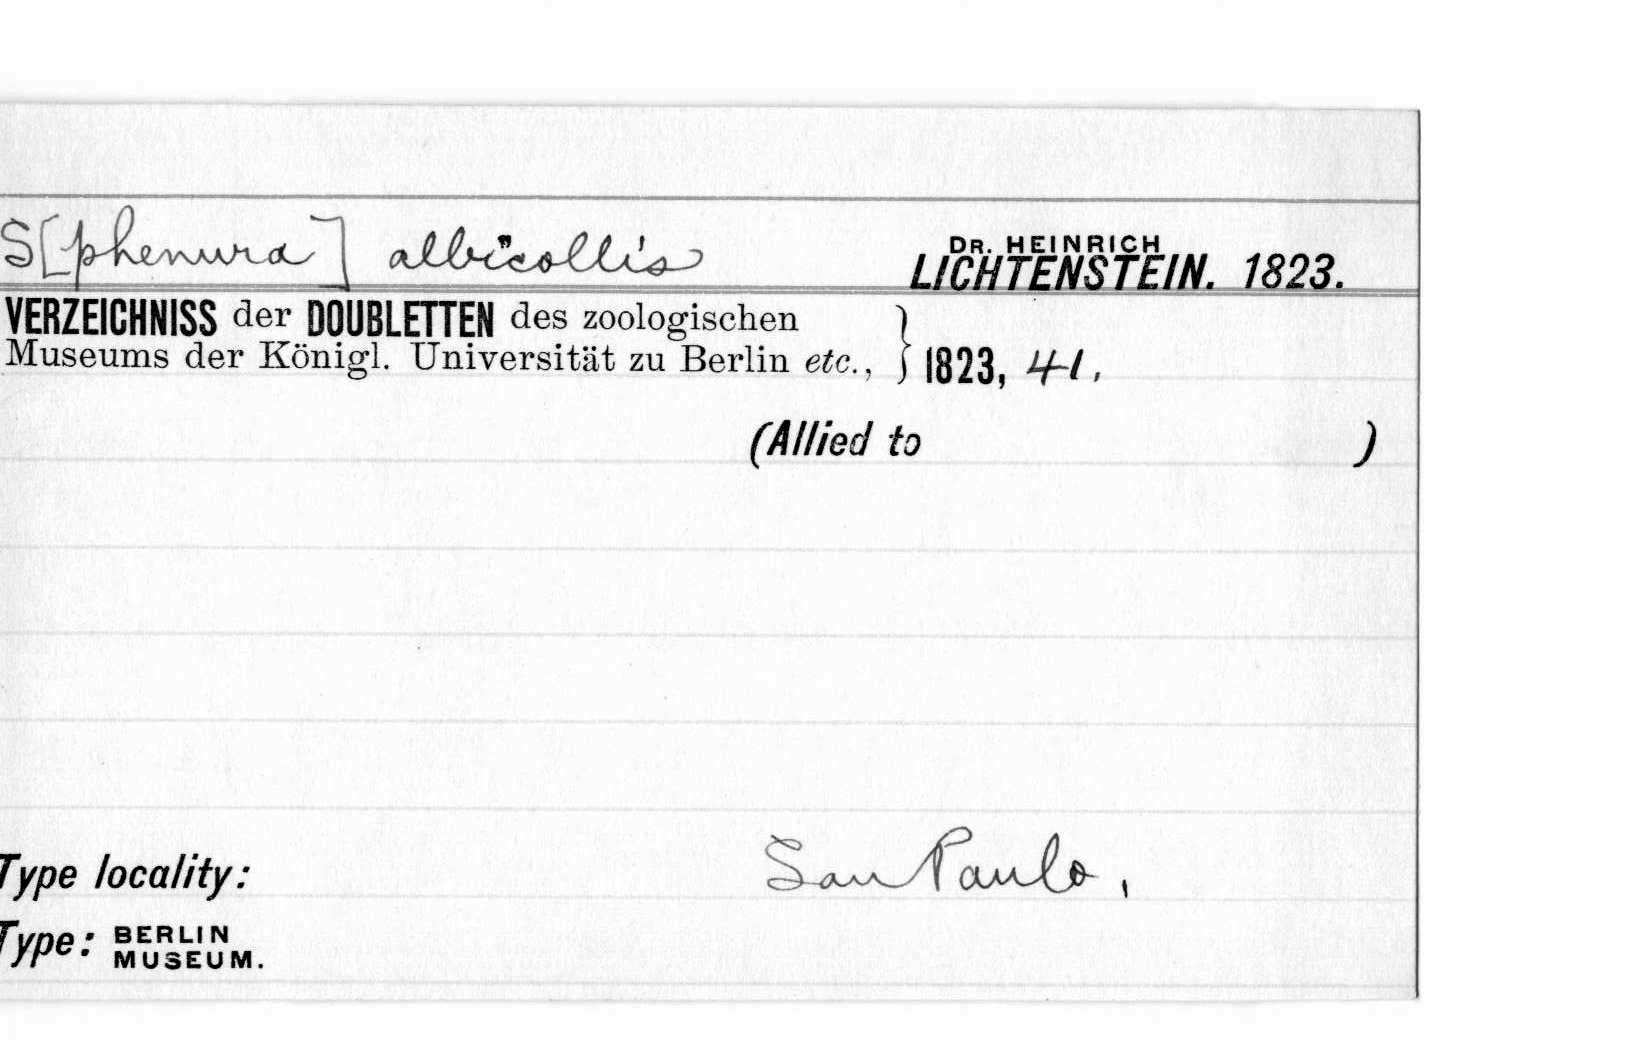 S[phenura] albicollis
DR. HEINRICH
LICHTENSTEIN. 1823.
VERZEICHNISS der DOUBLETTEN des zoologischen
Museums der Königl. Universität zu Berlin etc., } 1823, 41.
(Allied to )
San Paulo,
Type locality:
Type: BERLIN
MUSEUM.